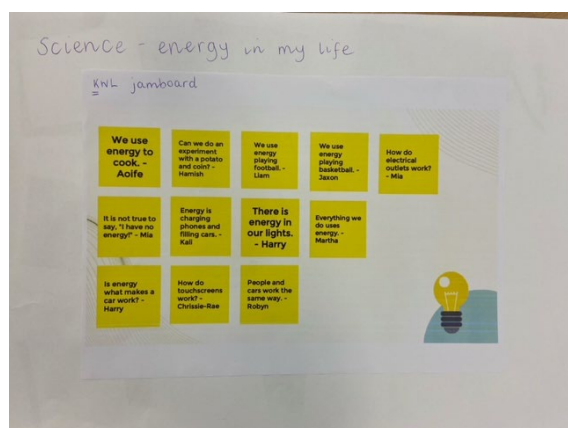 Science - energy in my life
KWL jamboard
We use
energy to
cook. -
Aoife
Can we do an
experiment
with a potato
and coin? -
Hamish
We use
energy
playing
football. -
Liam
We use
energy
playing
basketball. -
Jaxon
How do
electrical
outlets work?
- Mia
It is not true to
say, "I have no
energy!" - Mia
Energy is
charging
phones and
filling cars. -
Kali
There is
energy in
our lights.
- Harry
Everything we
do uses
energy. -
Martha
Is energy
what makes a
car work? -
Harry
How do
touchscreens
work? -
Chrissie-Rae
People and
cars work the
same way. -
Robyn